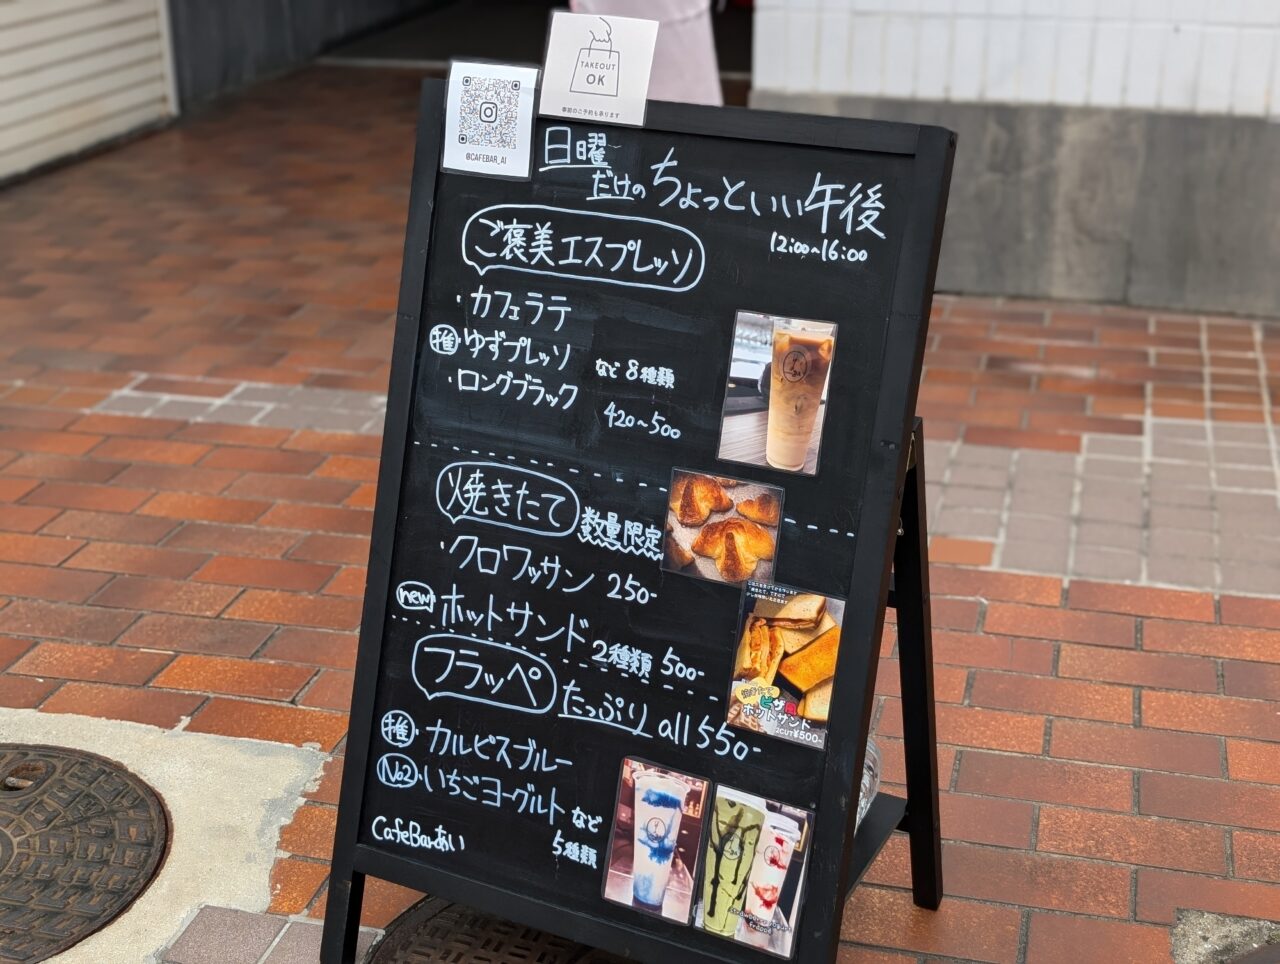 TAKEOUT
OK
事前のご予約も承ります
@CAFEBAR_AI
日曜
だけの ちょっといい午後
12:00~16:00
ご褒美エスプレッソ
・カフェラテ
推・ゆずプレッソ
・ロングブラック
など 8種類
420~500
焼きたて 数量限定
・クロワッサン 250-
new ホットサンド 2種類 500-
焼きたて
ピザ
ホットサンド
2CUT¥500-
フラッペ たっぷり all 550-
推・カルピスブルー
No2・いちごヨーグルト など
5種類
CafeBarあい